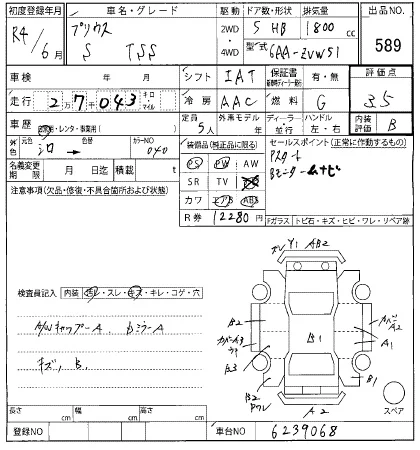 初度登録年月 車名・グレード 駆動 ドア数・形状 排気量 出品NO.
R4/6月 プリウス 2WD・4WD 5 HB 1800cc 589
S TSS 型式 6AA-ZVW51
車検 年 月 シフト IAT 保証書 有・無 評価点
走行 2万7千043 キロ・マイル 冷房 AAC 燃料 G 3.5
車歴 自家用・レンタ・事業用( ) 定員 5人 外装モデル 年 ディーラー・並行 ハンドル 左・右 内装評価 B
外色 元色 シロ カラーNO 040 装備品(純正品に限る) セールスポイント(正常に動作するもの)
名義変更期限 月 日迄 積載 t PS PW AW Pスタート
SR TV
注意事項(欠品・修復・不具合箇所および状態) カワ ABS
R券 12280円
Fガラス トビ石・キズ・ヒビ・ワレ・リペア跡
Y1 AB2
検査員記入 内装 ・スレ・キズ・キレ・コゲ・穴
A/WキャップーA BミラーA
キズ,B.
B2 B1 カバーA A1
B3 B1
B2 A2 スペア
長さ cm 幅 cm 高さ cm
登録NO 車台NO 6239068